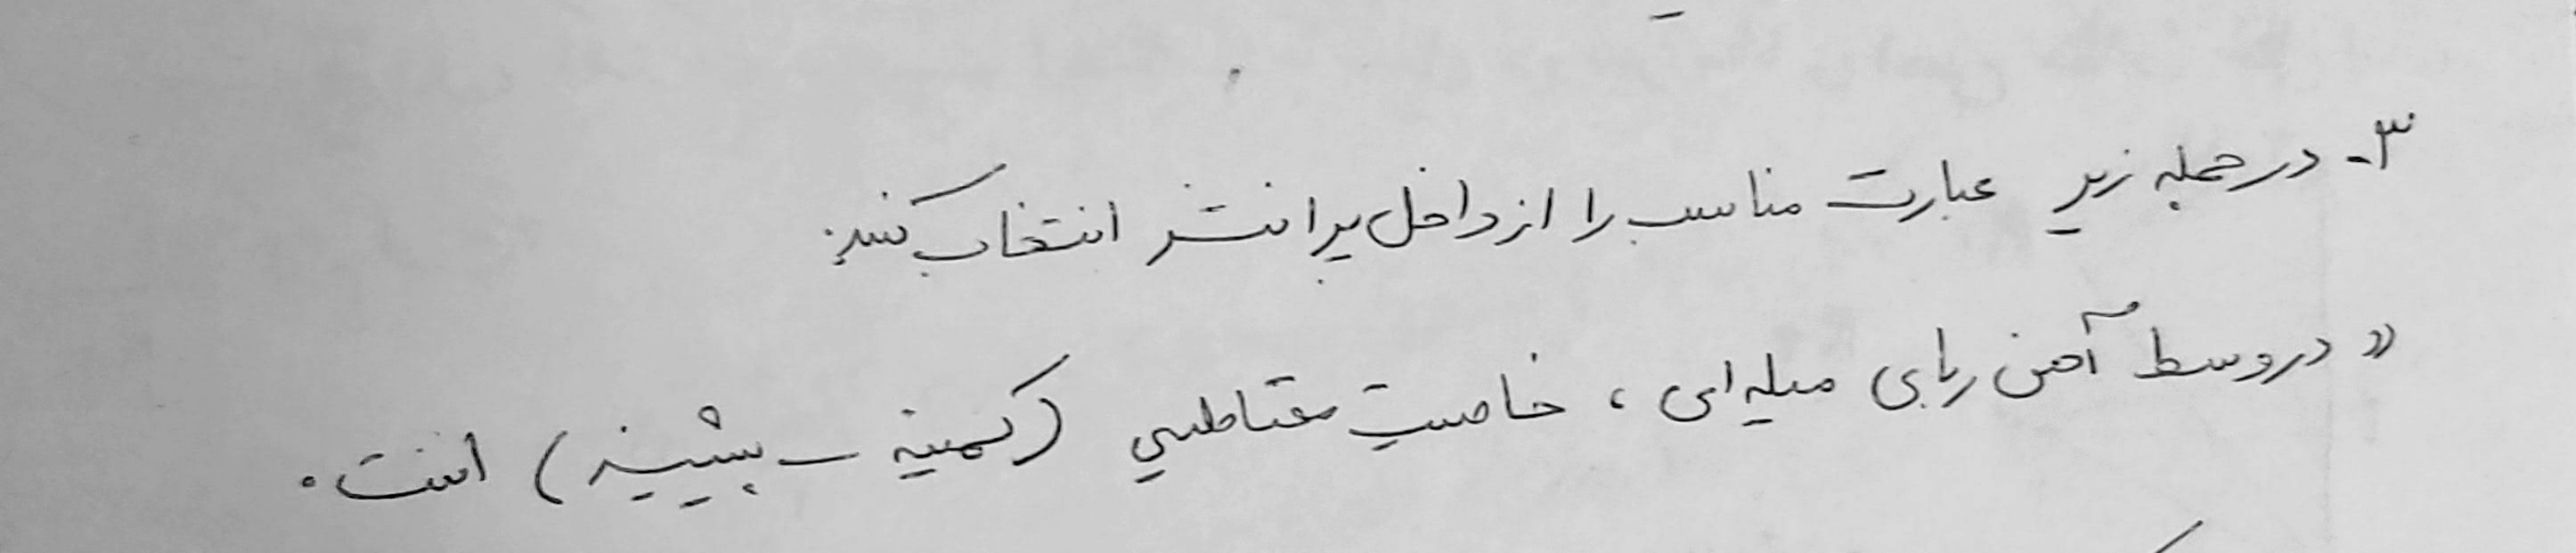 ۳- در جمله زیر عبارت مناسب را از داخل پرانتز انتخاب کنید:
« در وسط آهن ربای میله ای ، خاصیت مغناطیسی (کمینه - بیشینه) است .